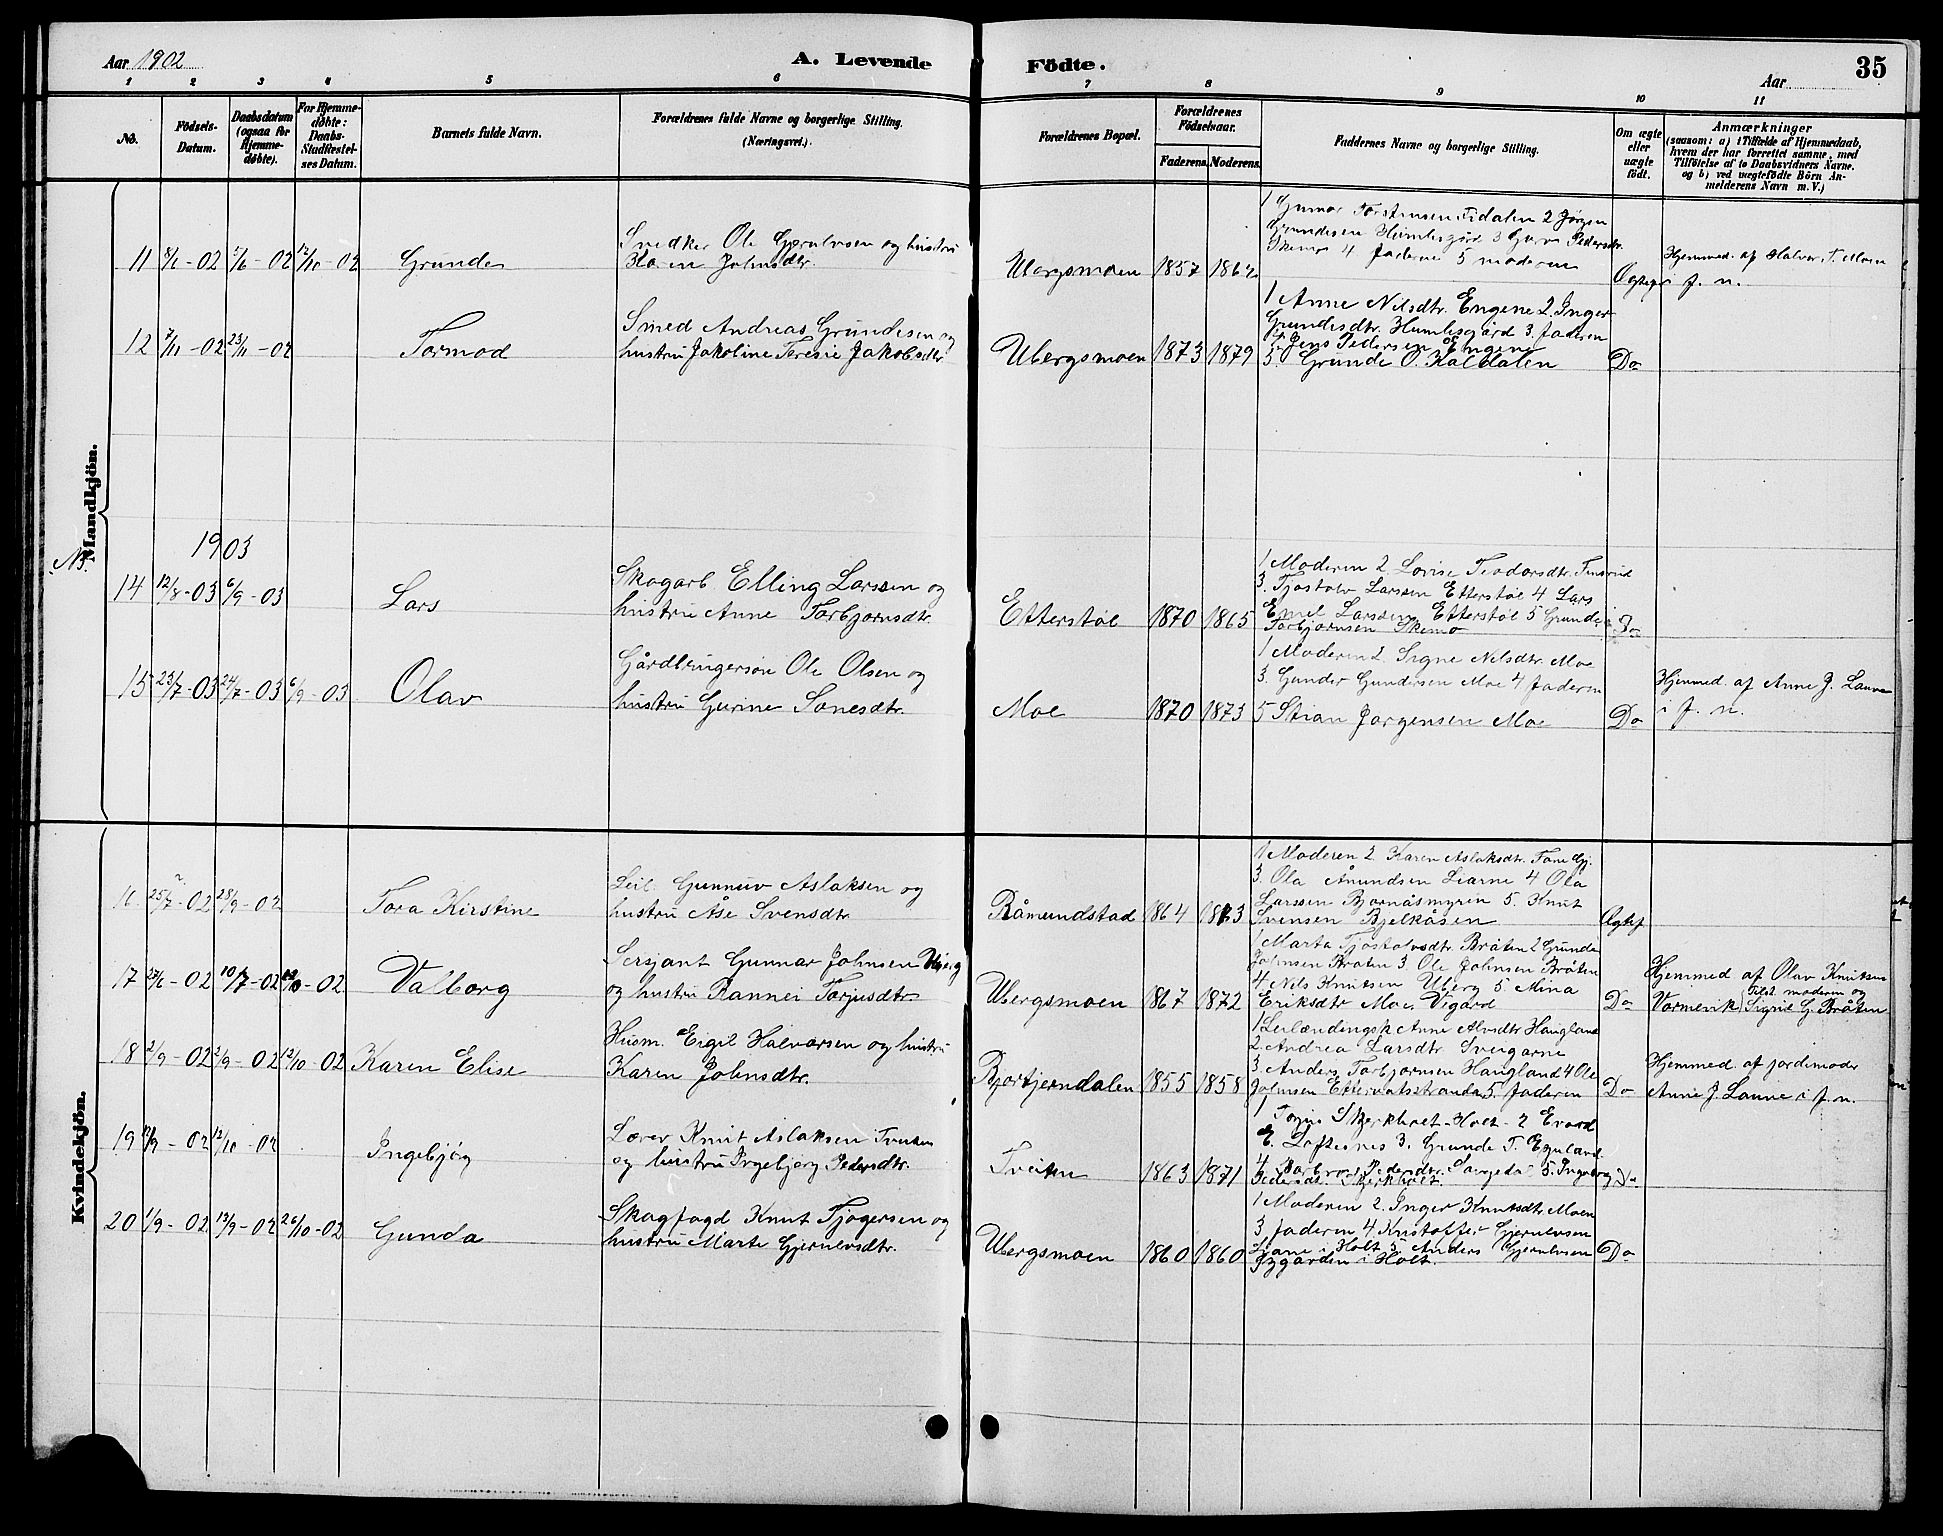 Aar 1902
A. Levende Födte.
Aar
35
1 2 3 4 5 6 7 8 9 10 11
No.
Födsels-Datum.
Daabsdatum (ogsaa for Hjemmedöbte).
For Hjemmedöbte: Daabs-Stadfæstelses Datum.
Barnets fulde Navn.
Forældrenes fulde Navne og borgerlige Stilling. (Næringsvei.)
Forældrenes Bopæl.
Forældrenes Födselsaar.
Faderens. Moderens.
Faddernes Navne og borgerlige Stilling.
Om ægte eller uægte födt.
Anmærkninger
(saasom: a) i Tilfælde af Hjemmedaab,
hvem der har forrettet samme, med
Tilföielse af to Daabsvidners Navne.
og b) ved uægtefödte Börn An-
melderens Navn m. V.)
Mandkjön.
11 8/6 - 02 - 02 12/10 - 02 Grunde
Snedker Ole Gjerulvsen og hustru
Karen Johnsdtr.
Ubergsmoen 1857
1 Gunnar Torstensen 2 Jörgen
Grundesen Humlegård 3
Skemo 4 Faderen 5 moderen
Hjemmed. af Halvor T. Moen
i f. n.
12 7/11 - 02 23/11 - 02 Tormod
Smed Andreas Grundesen og
hustru Jakobine Teresie Jakobsdtr
Ubergsmoen 1873 1879
1 Anne Nilsdtr. Engene 2. Inger
Grundesdtr. Humlegård 3 Faderen
4 Jens Pedersen Engene
5. Grunde O. Kaldalen
Do
1903
NB.
14 12/8 - 03 6/9 - 03 Lars
Skogarb. Elling Larssen og
hustru Anne Torbjørnsdtr.
Etterstøl 1870 1865
1 Moderen 2. Lovise Teodorsdtr.
3. Tjostolv Larssen Etterstøl 4 Lars
Emil Larssen Etterstøl 5 Grunde
Torbjørnsen Skemo
Do
15 23/7 - 03 24/7 - 03 6/9 - 03 Olav
Gårdbrugersøn Ole Olsen og
hustru Gurine Sonesdtr.
Moe 1870 1873
1 Moderen 2. Signe Nilsdtr. Moe
3. Gunder Gundersen Moe 4 Faderen
5 Stian Jørgensen Moe
Do
Hjemmed. af Anne J. Lauve
i f. n.
Kvindekjön.
16 25/7 - 02 28/9 - 02 Tora Kirstine
Leil. Gunnuv Aslaksen og
hustru Åse Svensdtr.
Råmundstad 1864 1873
1 Moderen 2. Karen Aslaksdtr.
3. Ola Ånundsen Liarne 4 Ola
Larssen Bjørnåsmyren 5. Knut
Svensen Bjelkåsen
Ægtef
17 27/6 - 02 10/7 - 02 12/10 - 02 Valborg
Sersjant Gunnar Johnsen Uberg
og hustru Rannei Torjusdtr
Ubergsmoen 1867 1872
1 Marta Tjostolvsdtr. Bråten 2 Grunde
Johnsen Bråten 3. Ole Johnsen Bråten
4 Nils Knutsen Uberg 5 Mina
Eriksdtr Moe Vegård
Do
Hjemmed af Olav Knutsen
Tilst. moderen og
Vormevik Sigrid G. Bråten
18 2/9 - 02 2/9 - 02 12/10 - 02 Karen Elise
Husm. Eigil Halvorsen og hustru
Karen Johnsdtr.
Bjortjerndalen 1855 1858
1 Anne Alvsdtr Haugland
2. Andrea Larsdtr. Sveigarne
3. Anders Torbjørnsen Haugland 4 Ole
Johnsen Ettervatsstranden 5. Faderen
Do
Hjemmed af jordmoder
Anne J. Lauve i f. n.
19 12/9 - 02 12/10 - 02 Ingebjørg
Lærer Knut Aslaksen Tveiten
og hustru Ingebjørg Pedersdtr.
Tveiten 1863 1871
1 Torjus Skjerkholt - Holt - 2
3. Grunde T. Egeland
4 Pedersdtr. Songedal 5. Ingeborg
Pedersdtr. Skjerkholt.
Do
20 1/9 - 02 13/9 - 02 26/10 - 02 Gunda
Skogfogd Knut Tjøgersen og
hustru Marte Gjerulvsdtr.
Ubergsmoen 1860 1860
1 Moderen 2. Inger Knutsdtr. Moen
3. Faderen 4. Kristoffer Gjerulvsen
Liane i Holt 5. Anders Gjerulvsen
Nygården i Holt.
Do